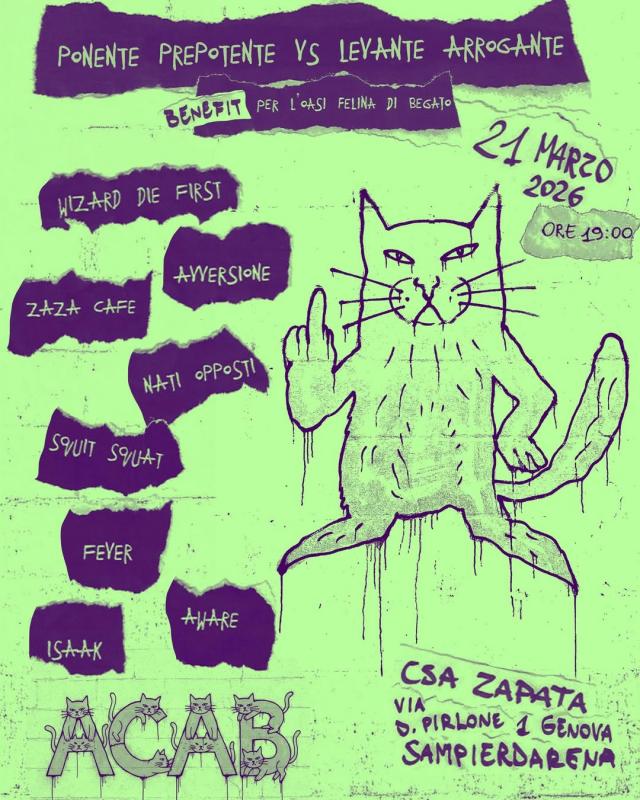 PONENTE PREPOTENTE VS LEVANTE ARROGANTE
BENEFIT PER L'OASI FELINA DI BEGATO
21 MARZO
2026
ORE 19:00
WIZARD DIE FIRST
AVVERSIONE
ZAZA CAFE
NATI OPPOSTI
SQUIT SQUAT
FEVER
AWARE
ISAAK
ACAB
CSA ZAPATA
VIA
D. PIRLONE 1 GENOVA
SAMPIERDARENA